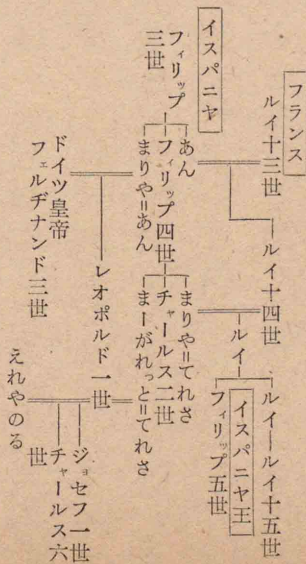 フランス
ルイ十三世
ルイ十四世
ルイ
ルイ―ルイ十五世
イスパニヤ王
フィリップ五世
イスパニヤ
フィリップ三世
あん
フィリップ四世
まりや＝あん
まりや＝てれさ
チャールス二世
まーがれっと＝てれさ
ドイツ皇帝
フェルヂナンド三世
レオポルド一世
えれやのる
ジョセフ一世
チャールス六世